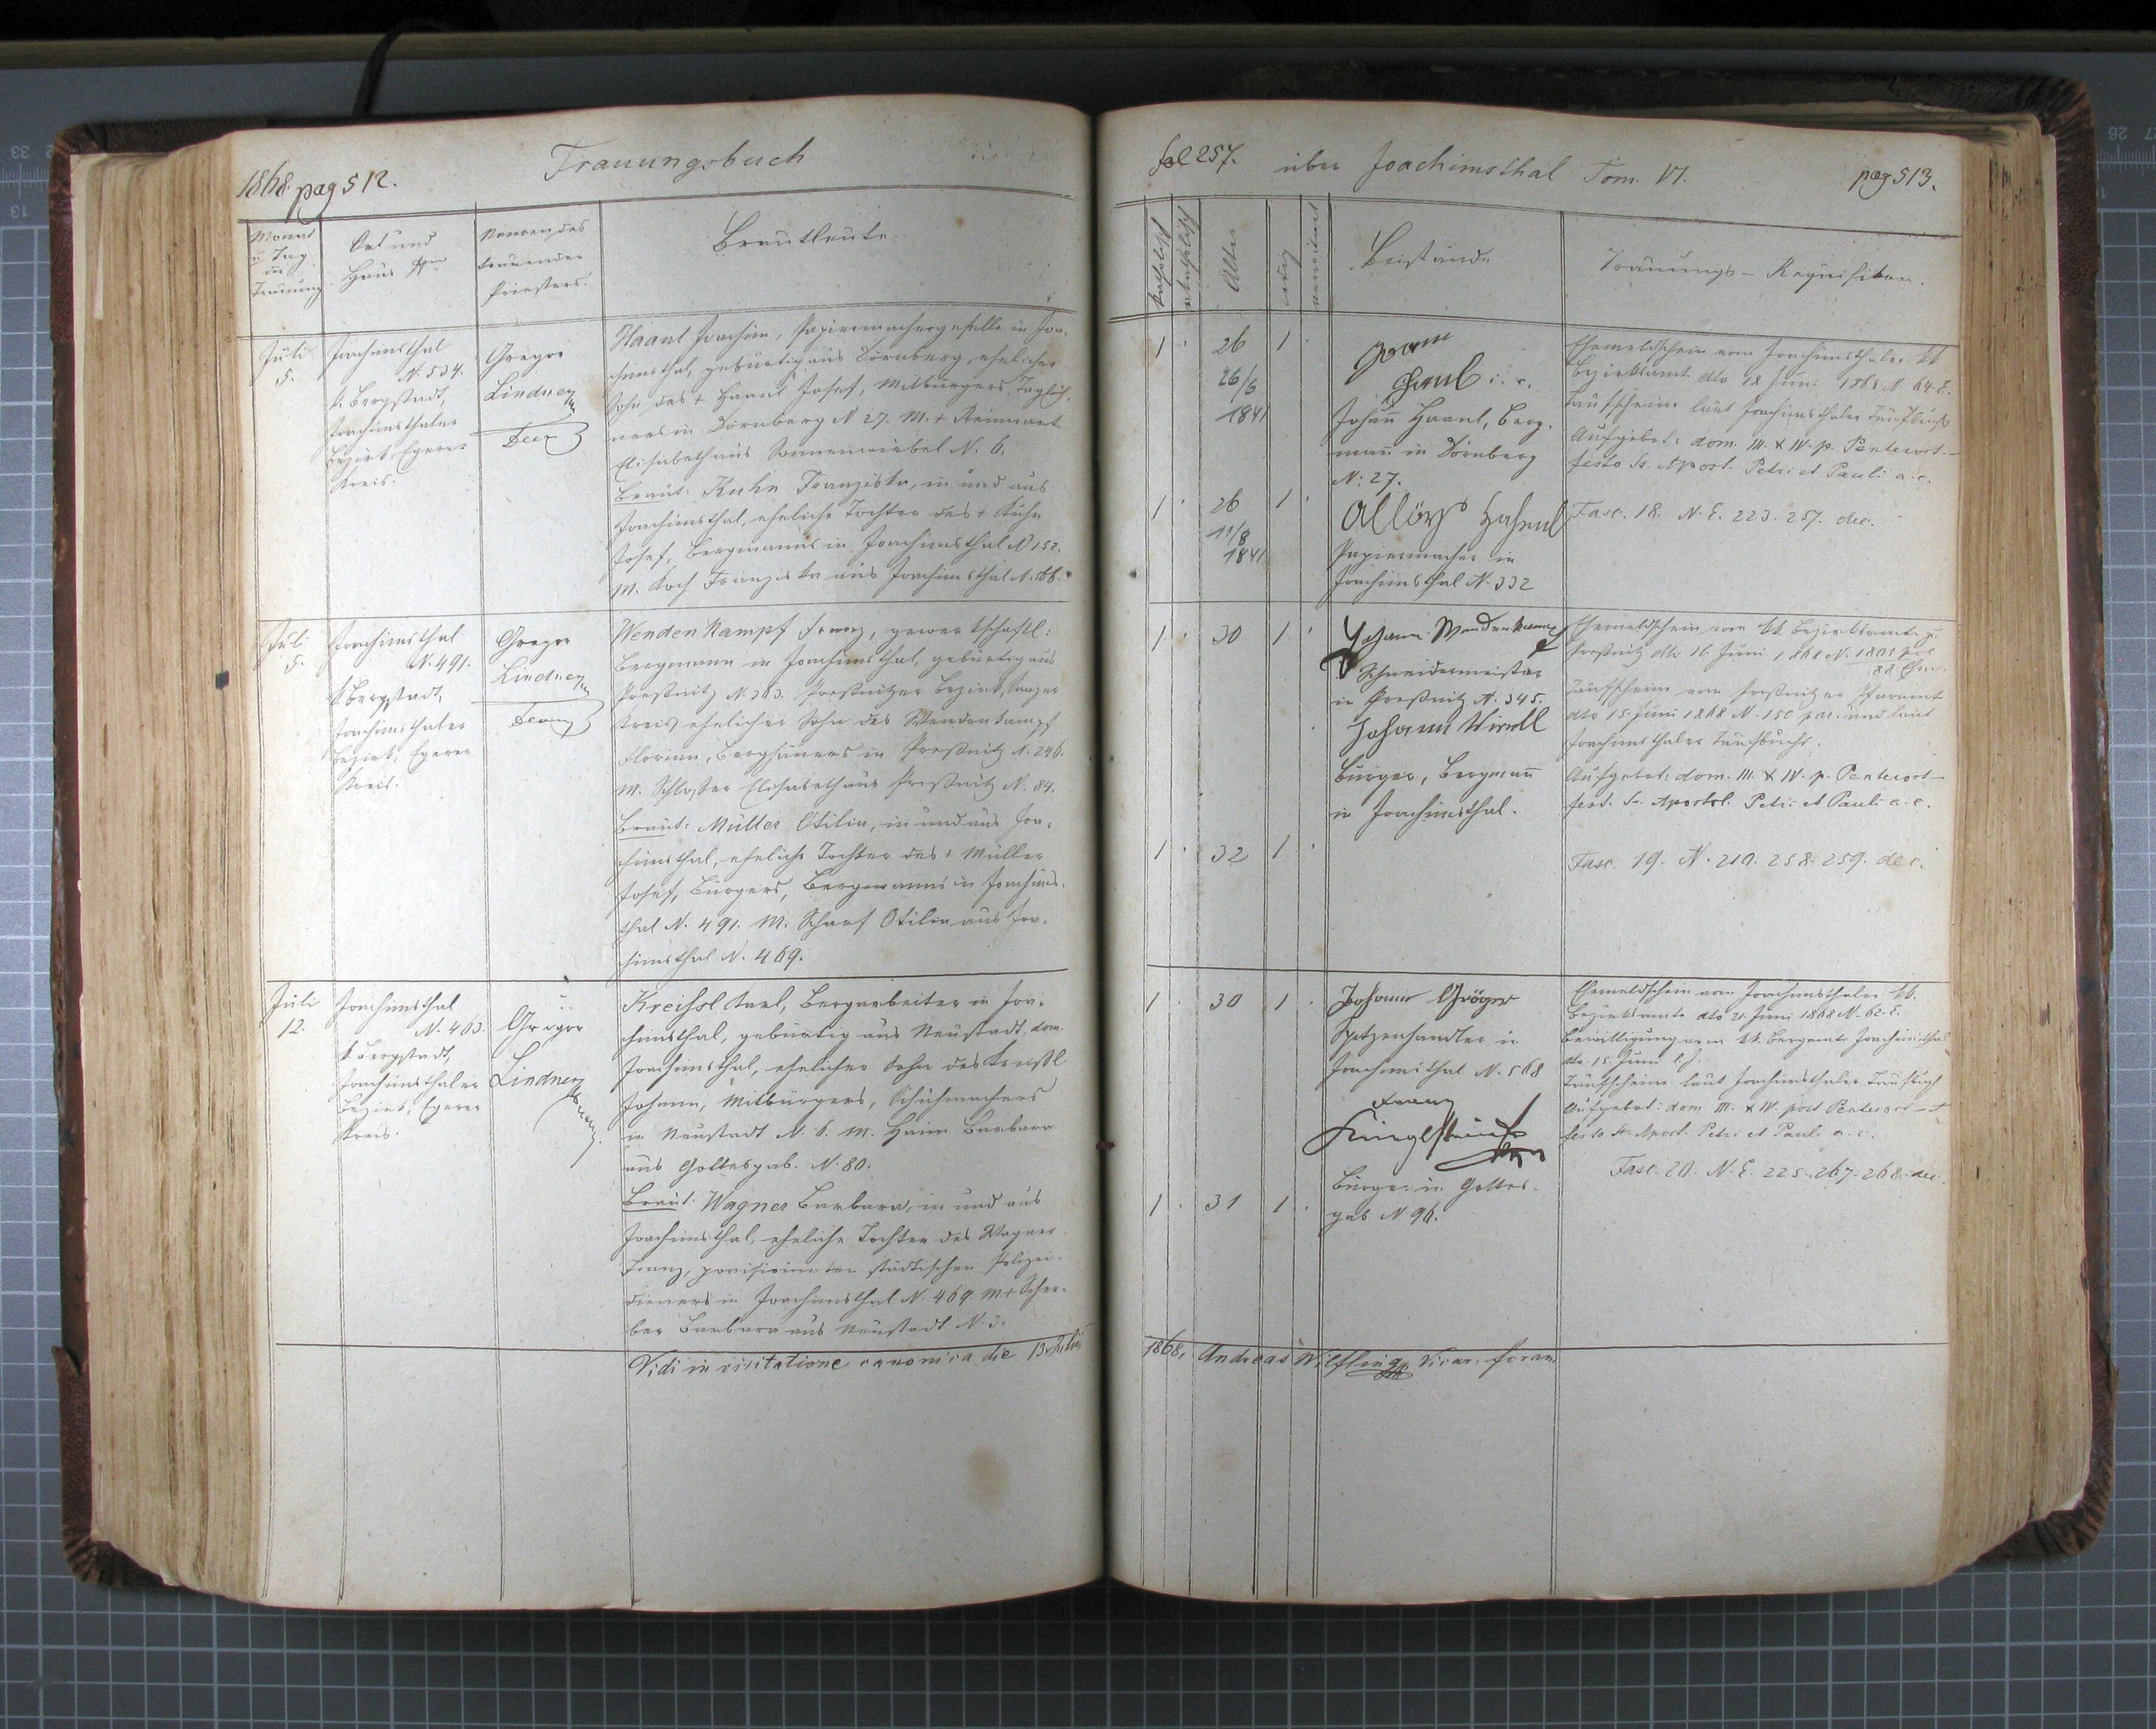 1868. pag 512.
Trauungsbuch
Monat
u Tag
der
Trauung
Ort und
Haus Nro
Namen des
trauenden
Priesters.
Brautleute.
Juli
5.
Joachimsthal
N. 534.
k. Bergstadt,
Joachimsthaler
Bezirk, Egerer
Kreis.
Gregor
Lindner
Haanl Joachim, Papiermachergeselle in Joa-
chimsthal, gebürtig aus Dörnberg, ehelicher
Sohn des + Haanl Josef, Mitbürgers, Taglöh-
ners in Dörnberg N 27. M. + Reinwart
Elisabeth aus Sonnenwirbel N. 6.
Braut: Kuhn Franziska, in und aus
Joachimsthal, eheliche Tochter des + Kuhn
Josef, Bergmanns in Joachimsthal N 152.
M. Koch Franziska aus Joachimsthal N.
Juli
5.
Joachimsthal
N. 491.
k. Bergstadt,
Joachimsthaler
Bezirk, Egerer
Kreis.
Gregor
Lindner
Wendenkampf Franz, gewerkschaftl:
Bergmann in Joachimsthal, gebürtig aus
Preßnitz N. 313. Preßnitzer Bezirk, Saazer
Kreis, ehelicher Sohn des Wendenkampf
Florian, Berghäuers in Preßnitz N. 246.
M. Schlosser Elisabeth aus Preßnitz N. 84.
Braut: Müller Otilia, in und aus Joa-
chimsthal, eheliche Tochter des + Müller
Josef, Bürgers, Bergmanns in Joachims-
thal N. 491. M. Scharf Otilia aus Joa-
chimsthal N. 469.
Juli
12.
Joachimsthal
N. 463.
k. Bergstadt,
Joachimsthaler
Bezirk, Egerer
Kreis.
Gregor
Lindner
Kreißl Karl, Bergarbeiter in Joa-
chimsthal, gebürtig aus Neustadt, dom.
Joachimsthal, ehelicher Sohn des Kreißl
Johann, Mitbürgers, Schuhmachers
in Neustadt N. 6. M. Haim Barbara
aus Gottesgab. N. 80.
Braut: Wagner Barbara, in und aus
Joachimsthal, eheliche Tochter des Wagner
Franz, provisionirten städtischen Polizei-
dieners in Joachimsthal N. 469. M + Scher-
ber Barbara aus Neustadt N. 3.
Vidi in visitatione canonica die 13. Julii
fol 257.
über Joachimsthal Tom. VI.
pag 513.
katholisch
akatholisch
Alter
ledig
verwitwet
Beistände
Trauungs-Requisiten.
1 26 1
26/6
1841
Johann Haanl, Berg-
mann in Dörnberg
N: 27.
1 26 1
11/8
1841
Papiermacher in
Joachimsthal N. 332
Ehemeldschein vom Joachimsthaler kk
Bezirksamt dto 18 Juni 1868 N. 64. E.
Taufscheine laut Joachimsthaler Taufbuch
Aufgebot: dom. III. & IV. p. Pentecost.-
festo Ss. Apost. Petri et Pauli a. c.
Fasc. 18. N. E. 223. 257. dec.
1 30 1
Johann Wendenkampf
Schneidermeister
in Preßnitz N. 345.
Johann
Bürger, Bergmann
in Joachimsthal.
1 32 1
Ehemeldschein vom kk. Bezirksamte zu
Preßnitz dto 16 Juni 1868 N. 1805
Taufschein vom Preßnitzer Pfarramt
dto 15. Juni 1868 N. 150 par. und laut
Joachimsthaler Taufbuchs.
Aufgebot: dom. III. & IV. p. Pentecost-
fest. Ss. Apostol. Petri et Pauli a. c.
Fasc. 19. N. 210. 258. 259. dec.
1 30 1
Johann Gröger
Spitzenhandler in
Joachimsthal N. 568
Franz
Bürger in Gottes-
gab N 96.
1 31 1
Ehemeldschein vom Joachimsthaler kk.
Bezirksamte dto 21. Juni 1868 N. 62. E.
Bewilligung vom kk. Bergamte Joachimsthal
dto 15. Juni l. J.
Taufscheine laut Joachimsthaler Taufbuch
Aufgebot: dom III. & IV. post Pentecost-
festo Ss. Apost. Petri et Pauli a. c.
Fasc. 20. N. E. 225. 267. 268. dec.
1868, Andreas Wilfling, Vicar. foran.